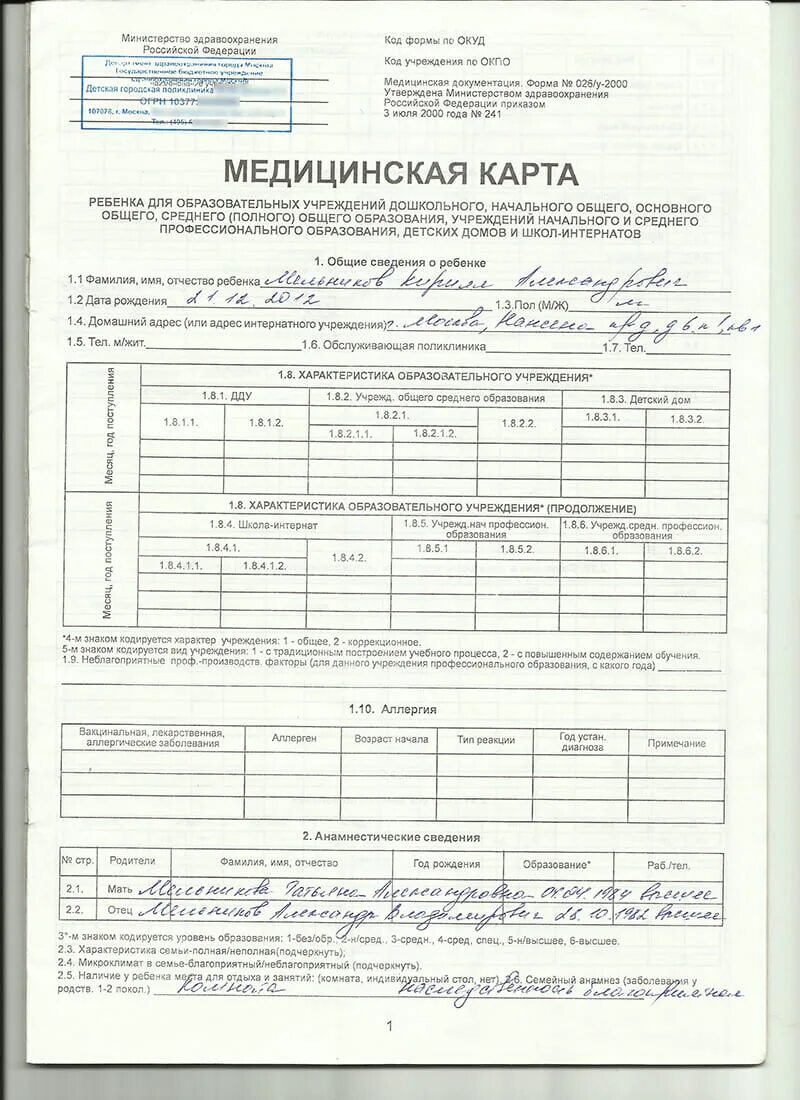 Министерство здравоохранения
Российской Федерации
Департамент здравоохранения города Москвы
Государственное бюджетное учреждение
здравоохранения города Москвы
Детская городская поликлиника
ОГРН 10377
107078, г. Москва,
Тел.: (495)
Код формы по ОКУД
Код учреждения по ОКПО
Медицинская документация. Форма № 026/у-2000
Утверждена Министерством здравоохранения
Российской Федерации приказом
3 июля 2000 года № 241
МЕДИЦИНСКАЯ КАРТА
РЕБЕНКА ДЛЯ ОБРАЗОВАТЕЛЬНЫХ УЧРЕЖДЕНИЙ ДОШКОЛЬНОГО, НАЧАЛЬНОГО ОБЩЕГО, ОСНОВНОГО
ОБЩЕГО, СРЕДНЕГО (ПОЛНОГО) ОБЩЕГО ОБРАЗОВАНИЯ, УЧРЕЖДЕНИЙ НАЧАЛЬНОГО И СРЕДНЕГО
ПРОФЕССИОНАЛЬНОГО ОБРАЗОВАНИЯ, ДЕТСКИХ ДОМОВ И ШКОЛ-ИНТЕРНАТОВ
1. Общие сведения о ребенке
1.1 Фамилия, имя, отчество ребенка Мельников Кирилл Александрович
1.2 Дата рождения 21.12.2012 1.3.Пол (М/Ж) м
1.4. Домашний адрес (или адрес интернатного учреждения) г. Москва, Нансена пр-д, д 6, п 1, кв 1
1.5. Тел. м/жит. 1.6. Обслуживающая поликлиника 1.7. Тел.
Месяц, год поступления
1.8. ХАРАКТЕРИСТИКА ОБРАЗОВАТЕЛЬНОГО УЧРЕЖДЕНИЯ*
1.8.1. ДДУ 1.8.2. Учрежд. общего среднего образования 1.8.3. Детский дом
1.8.1.1. 1.8.1.2. 1.8.2.1. 1.8.2.2. 1.8.3.1. 1.8.3.2.
1.8.2.1.1. 1.8.2.1.2.
Месяц, год поступления
1.8. ХАРАКТЕРИСТИКА ОБРАЗОВАТЕЛЬНОГО УЧРЕЖДЕНИЯ* (ПРОДОЛЖЕНИЕ)
1.8.4. Школа-интернат 1.8.5. Учрежд.нач профессион. образования 1.8.6. Учрежд.средн. профессион. образования
1.8.4.1. 1.8.4.2. 1.8.5.1 1.8.5.2. 1.8.6.1. 1.8.6.2.
1.8.4.1.1. 1.8.4.1.2.
*4-м знаком кодируется характер учреждения: 1 - общее, 2 - коррекционное.
5-м знаком кодируется вид учреждения: 1 - с традиционным построением учебного процесса, 2 - с повышенным содержанием обучения.
1.9. Неблагоприятные проф.-производств. факторы (для данного учреждения профессионального образования, с какого года)
1.10. Аллергия
Вакцинальная, лекарственная, аллергические заболевания Аллерген Возраст начала Тип реакции Год устан. диагноза Примечание
2. Анамнестические сведения
№ стр. Родители Фамилия, имя, отчество Год рождения Образование* Раб./тел.
2.1. Мать Мельникова Татьяна Александровна 01.04.1984 высшее
2.2. Отец Мельников Александр Владимирович 28.10.1982 высшее
3*-м знаком кодируется уровень образования: 1-без/обр., 2-н/сред., 3-средн., 4-сред, спец., 5-н/высшее, 6-высшее.
2.3. Характеристика семьи-полная/неполная(подчеркнуть);
2.4. Микроклимат в семье-благоприятный/неблагоприятный (подчеркнуть).
2.5. Наличие у ребенка места для отдыха и занятий: (комната, индивидуальный стол, нет) 2.6. Семейный анамнез (заболевания у
родств. 1-2 покол.) комната наследственность благоприятная
1